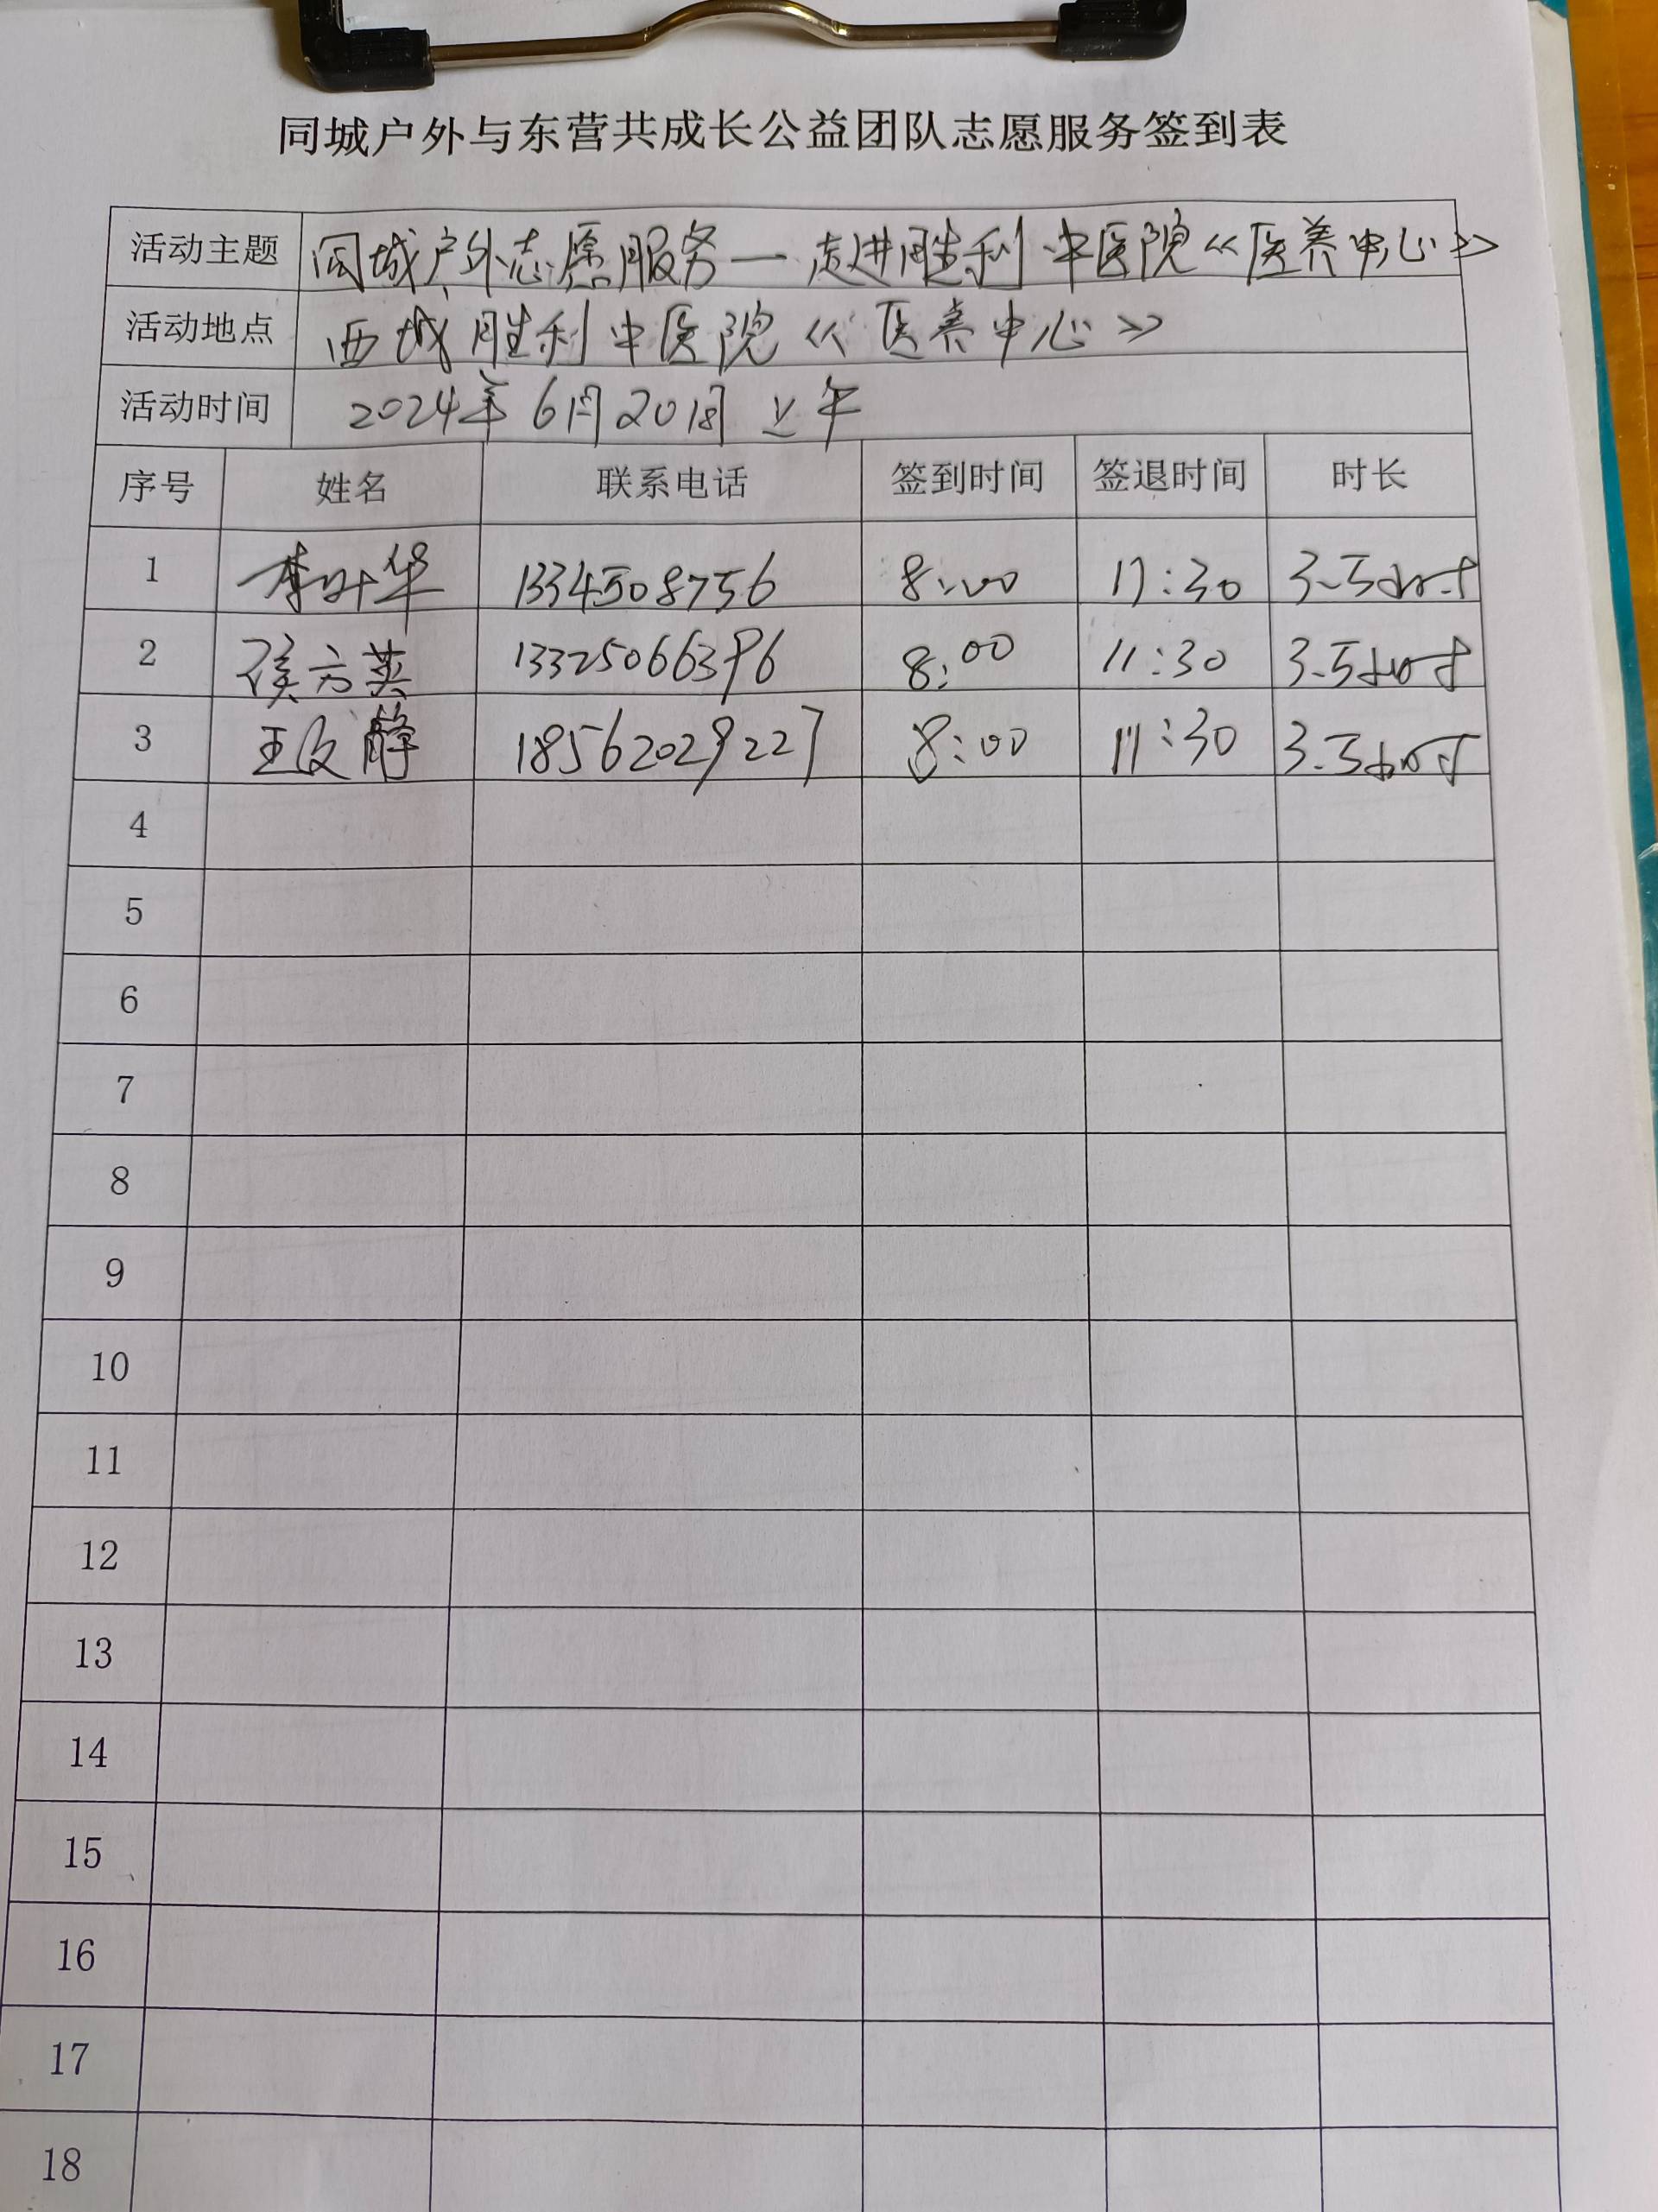 同城户外与东营共成长公益团队志愿服务签到表
活动主题 同城户外志愿服务—走进胜利中医院《医养中心》
活动地点 西城胜利中医院《医养中心》
活动时间 2024年6月20日 上午
序号 姓名 联系电话 签到时间 签退时间 时长
1 李叶华 13345087756 8:00 11:30 3.5小时
2 侯方英 13325066396 8:00 11:30 3.5小时
3 王文静 18562029227 8:00 11:30 3.5小时
4
5
6
7
8
9
10
11
12
13
14
15
16
17
18